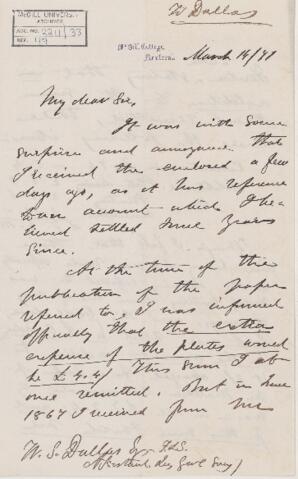 W Dallas
McGILL UNIVERSITY
ARCHIVES
ACC. NO. 2211/33
REF. 119
McGill College
Montreal
March 16/71
My dear Sir,
It was with some
surprise and annoyance that
I received the enclosed a few
days ago, as it has reference
to an account which I be-
lieved settled some years
since.
At the time of the
publication of the paper
referred to, I was informed
officially that the extra
expense of the plates would
be £4.4/ This sum I at
once remitted. But in June
1867 I received from Mr
W. S. Dallas Esqr F.L.S.